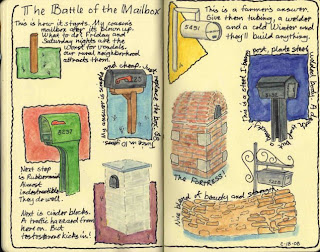 The Battle of the Mailbox
This is how it starts. My cousin's
mailbox after its blown up.
What to do? Friday and
Saturday nights are the
worst for vandals.
Our rural neighborhood
attracts them.
and cheap. Just
replace the box. So
8237
Next stop
is Rubbermaid
Almost
indestructible
They do well.
Next is cinder blocks.
A traffic hazard from
here on. But
testosterone kicks in!
5491
This is a farmer's answer.
Give them tubing, a welder
and a cold Winter and
they'll build anything.
This is a steel I beam post, plate steel
The FORTRESS!
Nice blend of beauty and strength
2-18-08